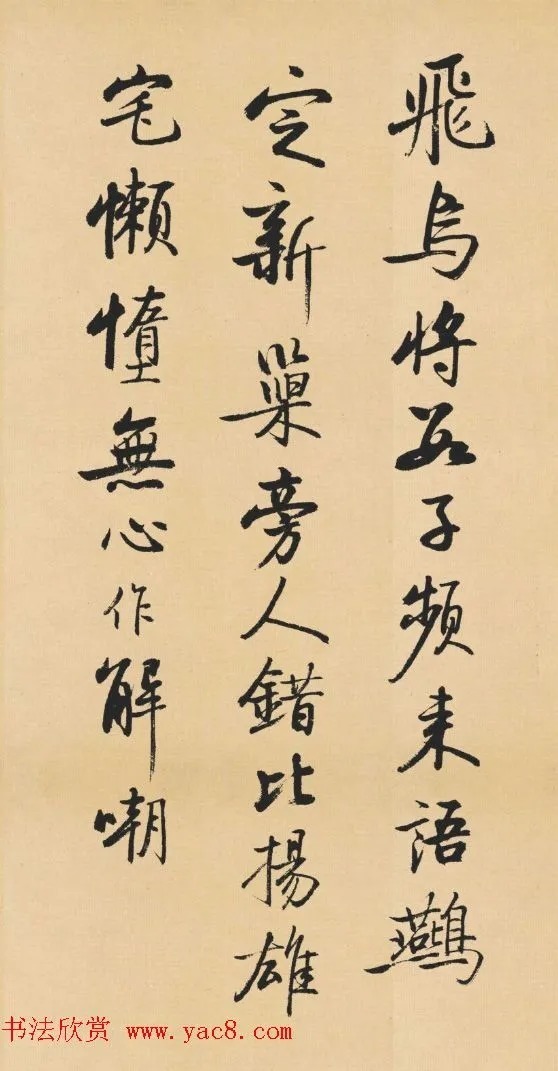 飛鳥將數子頻來語鷰
定新巢旁人錯比揚雄
宅懶惰無心作解嘲
书法欣赏 www.yac8.com